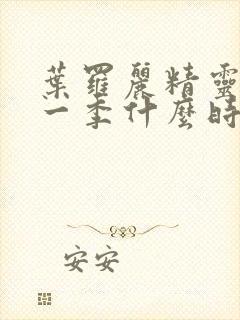 葉羅麗精靈
一季什麼時
安安